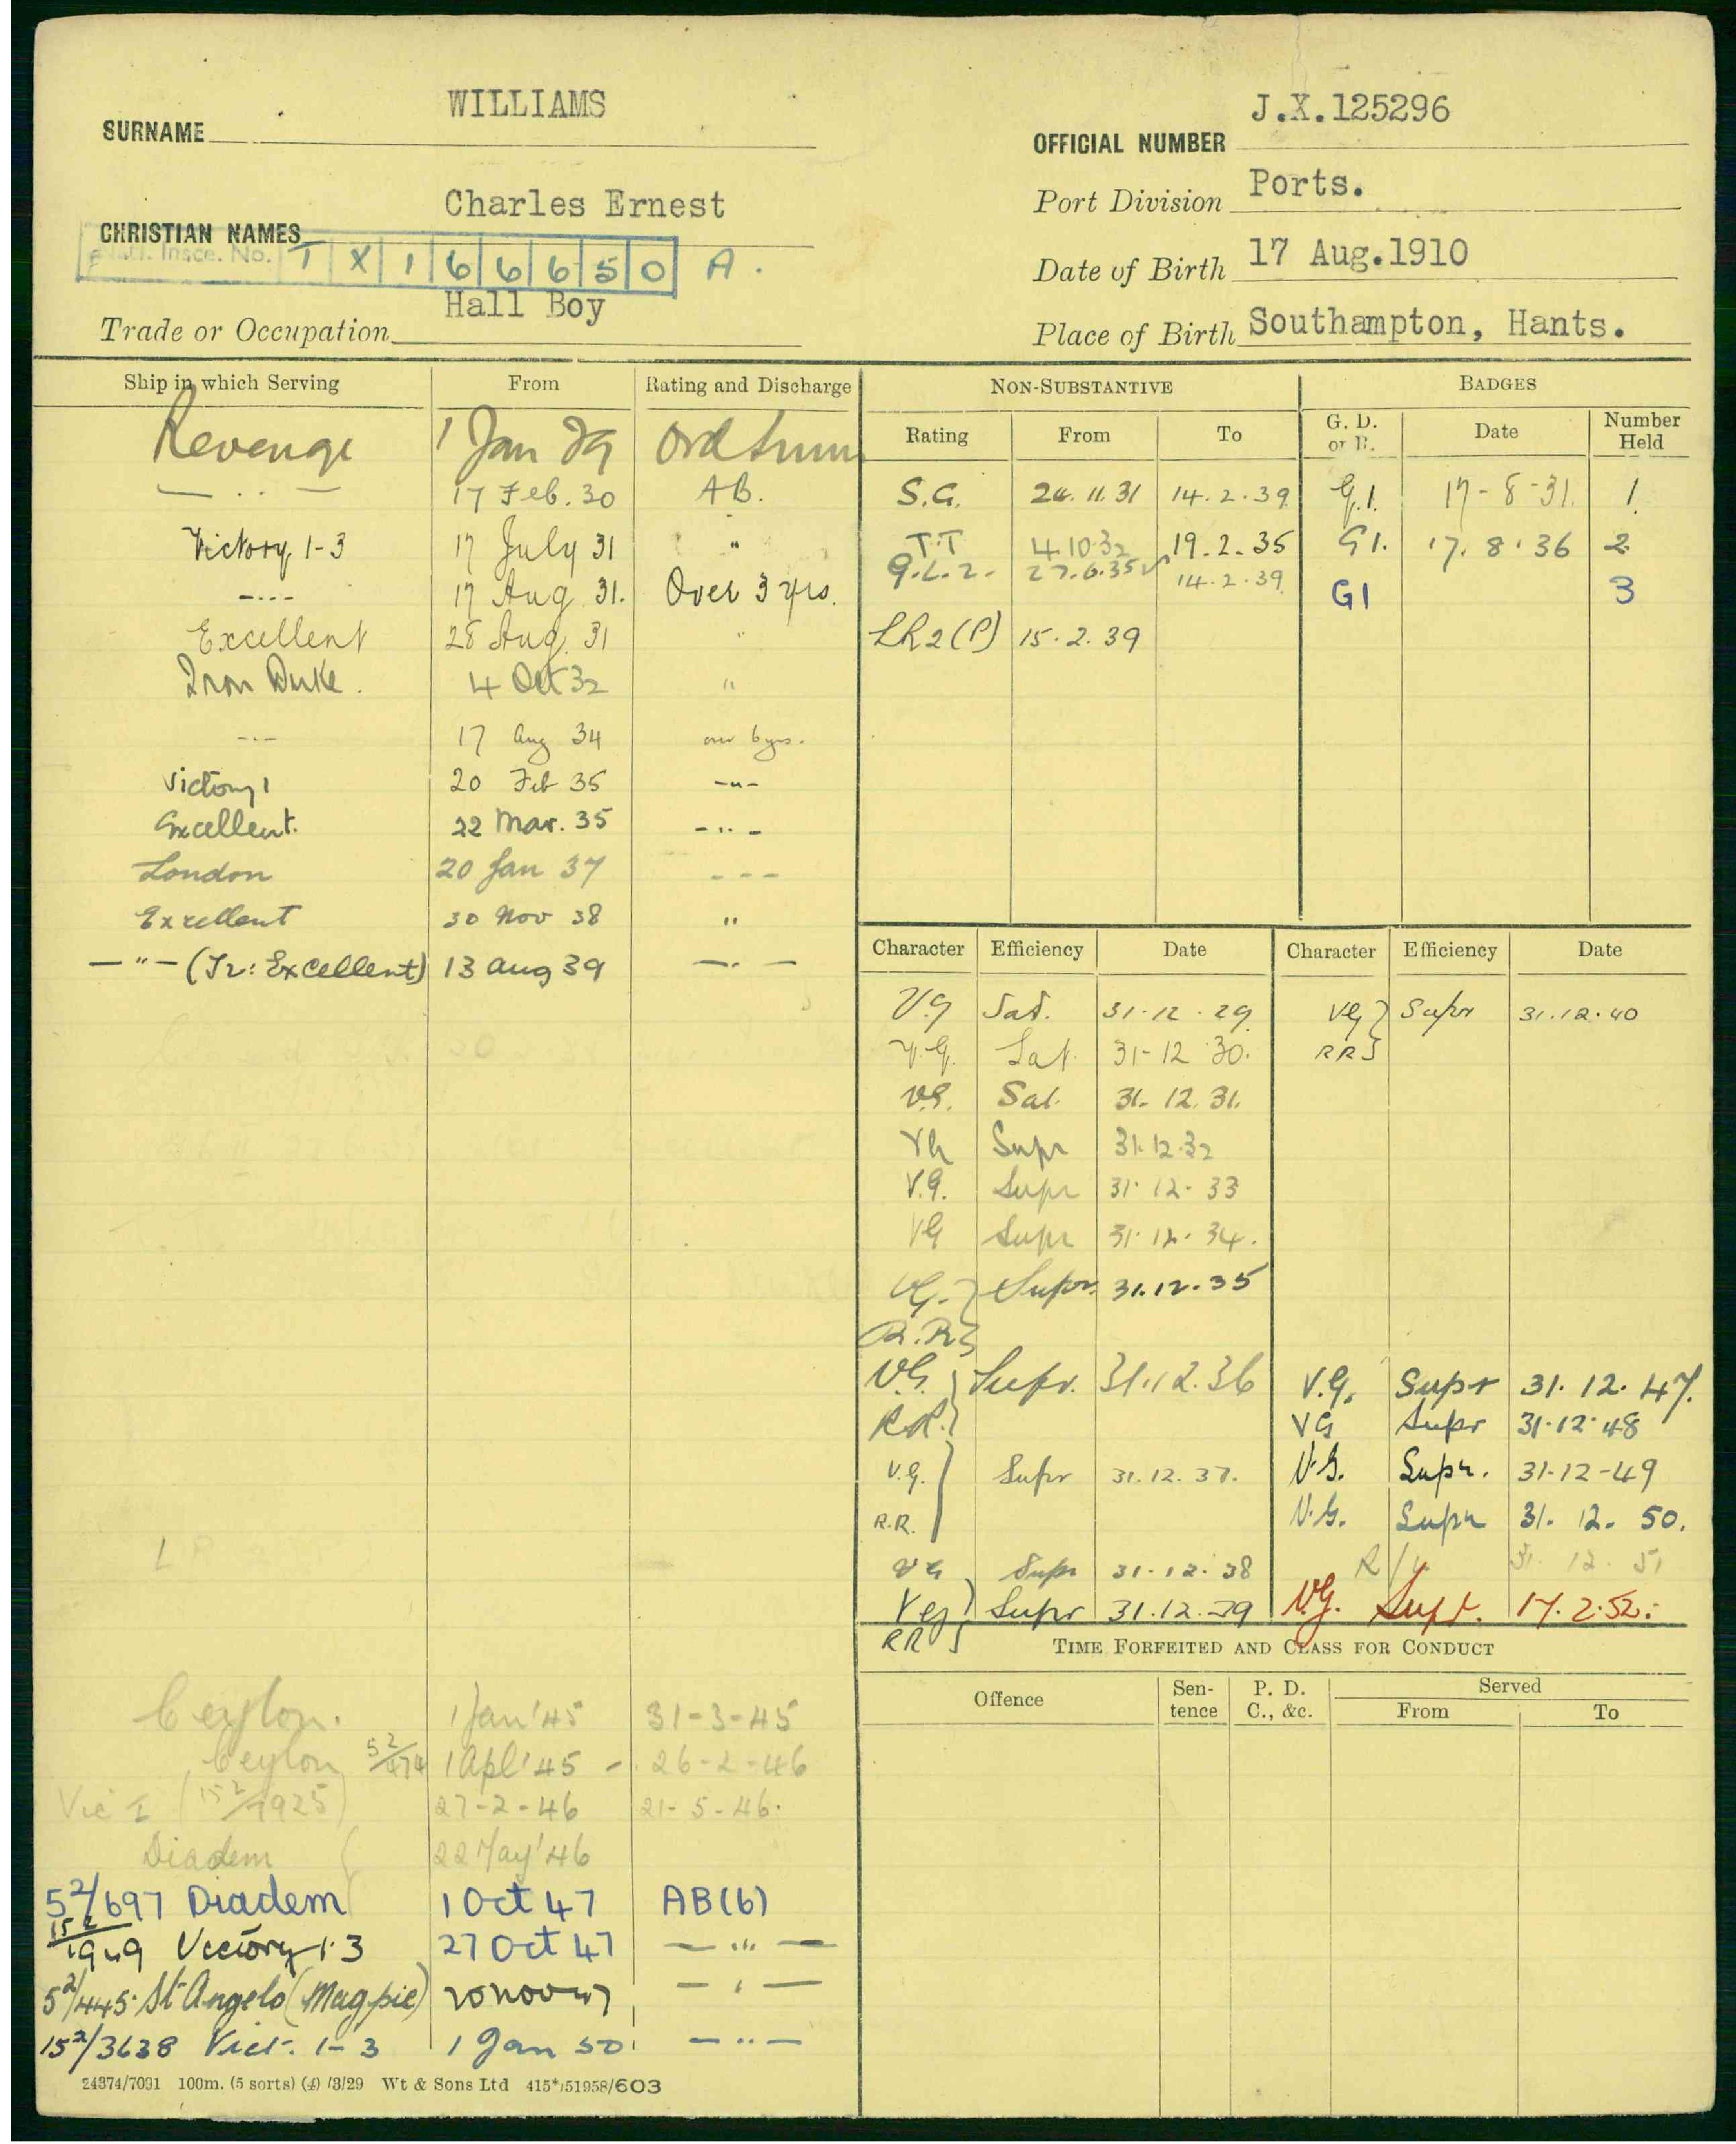 WILLIAMS
SURNAME
J.X.125296
OFFICIAL NUMBER
Charles Ernest
CHRISTIAN NAMES
Ports.
Port Division
Natl. Insce. No. T X 1 6 6 6 5 0 A.
17 Aug.1910
Date of Birth
Hall Boy
Trade or Occupation
Southampton, Hants.
Place of Birth
Ship in which Serving From Rating and Discharge
Revenge 1 Jan 29 Ord
— .. — 17 Feb. 30 AB.
Victory 1-3 17 July 31 "
—..— 17 Aug 31. Over 3 yrs.
Excellent 28 Aug. 31 "
Iron Duke. 4 Oct 32 "
—..— 17 Aug 34 over 6 yrs.
Victory 1 20 Feb 35 —"—
Excellent. 22 Mar. 35 —..—
London 20 Jan 37 - - -
Excellent 30 Nov 38 "
— " — (Tr: Excellent) 13 Aug 39 —..—
Ceylon. 1 Jan '45 31-3-45
Ceylon 5²/474 1 Apl '45 - 26-2-46
Vic I (15²/1925) 27-2-46 21-5-46.
Diadem 22 May '46
5²/697 Diadem 1 Oct 47 AB(6)
15²/1949 Victory 1-3 27 Oct 47 — " —
5²/445 St Angelo (Magpie) 20 Nov 47 — " —
15²/3638 Vict. 1-3 1 Jan 50 — .. —
24374/7091 100m. (5 sorts) (4) /3/29 Wt & Sons Ltd 415*/51958/603
NON-SUBSTANTIVE
Rating From To
S.G. 24.11.31 14.2.39
T.T 4.10.32 19.2.35
G.L.2. 27.6.35 14.2.39
LR2(P) 15.2.39
BADGES
G. D. or B. Date Number Held
G.1. 17-8-31. 1.
G1. 17.8.36 2
G1 3
Character Efficiency Date
V.G Sat. 31.12.29
V.G. Sat. 31-12 30.
VG. Sat. 31.12.31.
VG Supr 31.12.32
V.G. Supr 31.12.33
VG Supr 31.12.34.
VG. } Supr. 31.12.35
R.R }
V.G. } Supr. 31.12.36
R.R. }
V.G. } Supr 31.12.37.
R.R. }
VG Supr 31.12.38
VG } Supr 31.12.39
RR }
Character Efficiency Date
VG } Supr 31.12.40
RR }
V.G. Supr 31.12.47.
VG Supr 31.12.48
V.G. Supr. 31-12-49
V.G. Supr 31.12.50.
31.12.51
V.G. Supr. 17.2.52.
TIME FORFEITED AND CLASS FOR CONDUCT
Offence Sentence P. D. C., &c. Served
From To